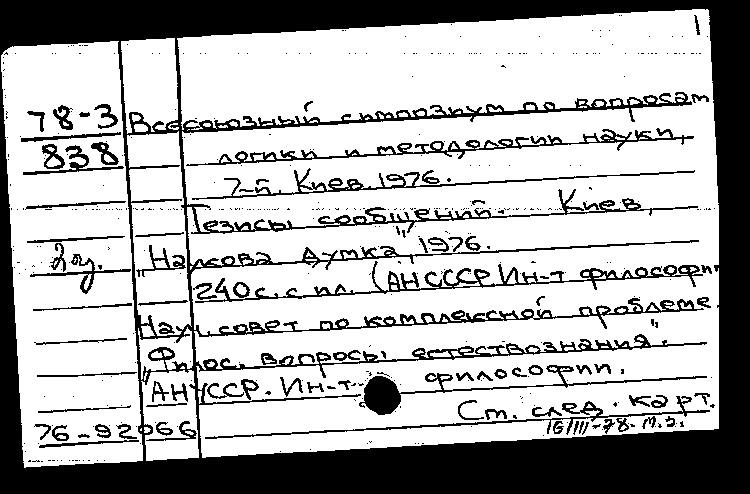 1
78-3 Всесоюзный симпозиум по вопросам
838 логики и методологии науки,
7-й. Киев. 1976.
Тезисы сообщений. Киев,
2 оу. „Наукова думка", 1976.
240 с. с ил. (АН СССР. Ин-т философии
Науч. совет по комплексной проблеме
„Филос. вопросы естествознания".
АН УССР. Ин-т философии.
См. след. карт.
76-92066
16/III-78. М.Э.